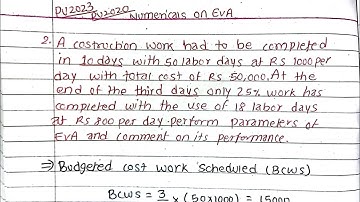 PU2023
PU2020 Numericals on EVA
2. A costruction work had to be completed
in 10 days with 50 labor days at RS 1000 per
day with total cost of RS 50,000. At the
end of the third days only 25% work has
completed with the use of 18 labor days
at RS 800 per day. perform parameters of
EVA and comment on its performance.
⇒ Budgeted cost work Scheduled (BCWS)
BCWS = 3 × (50×1000) = 15000